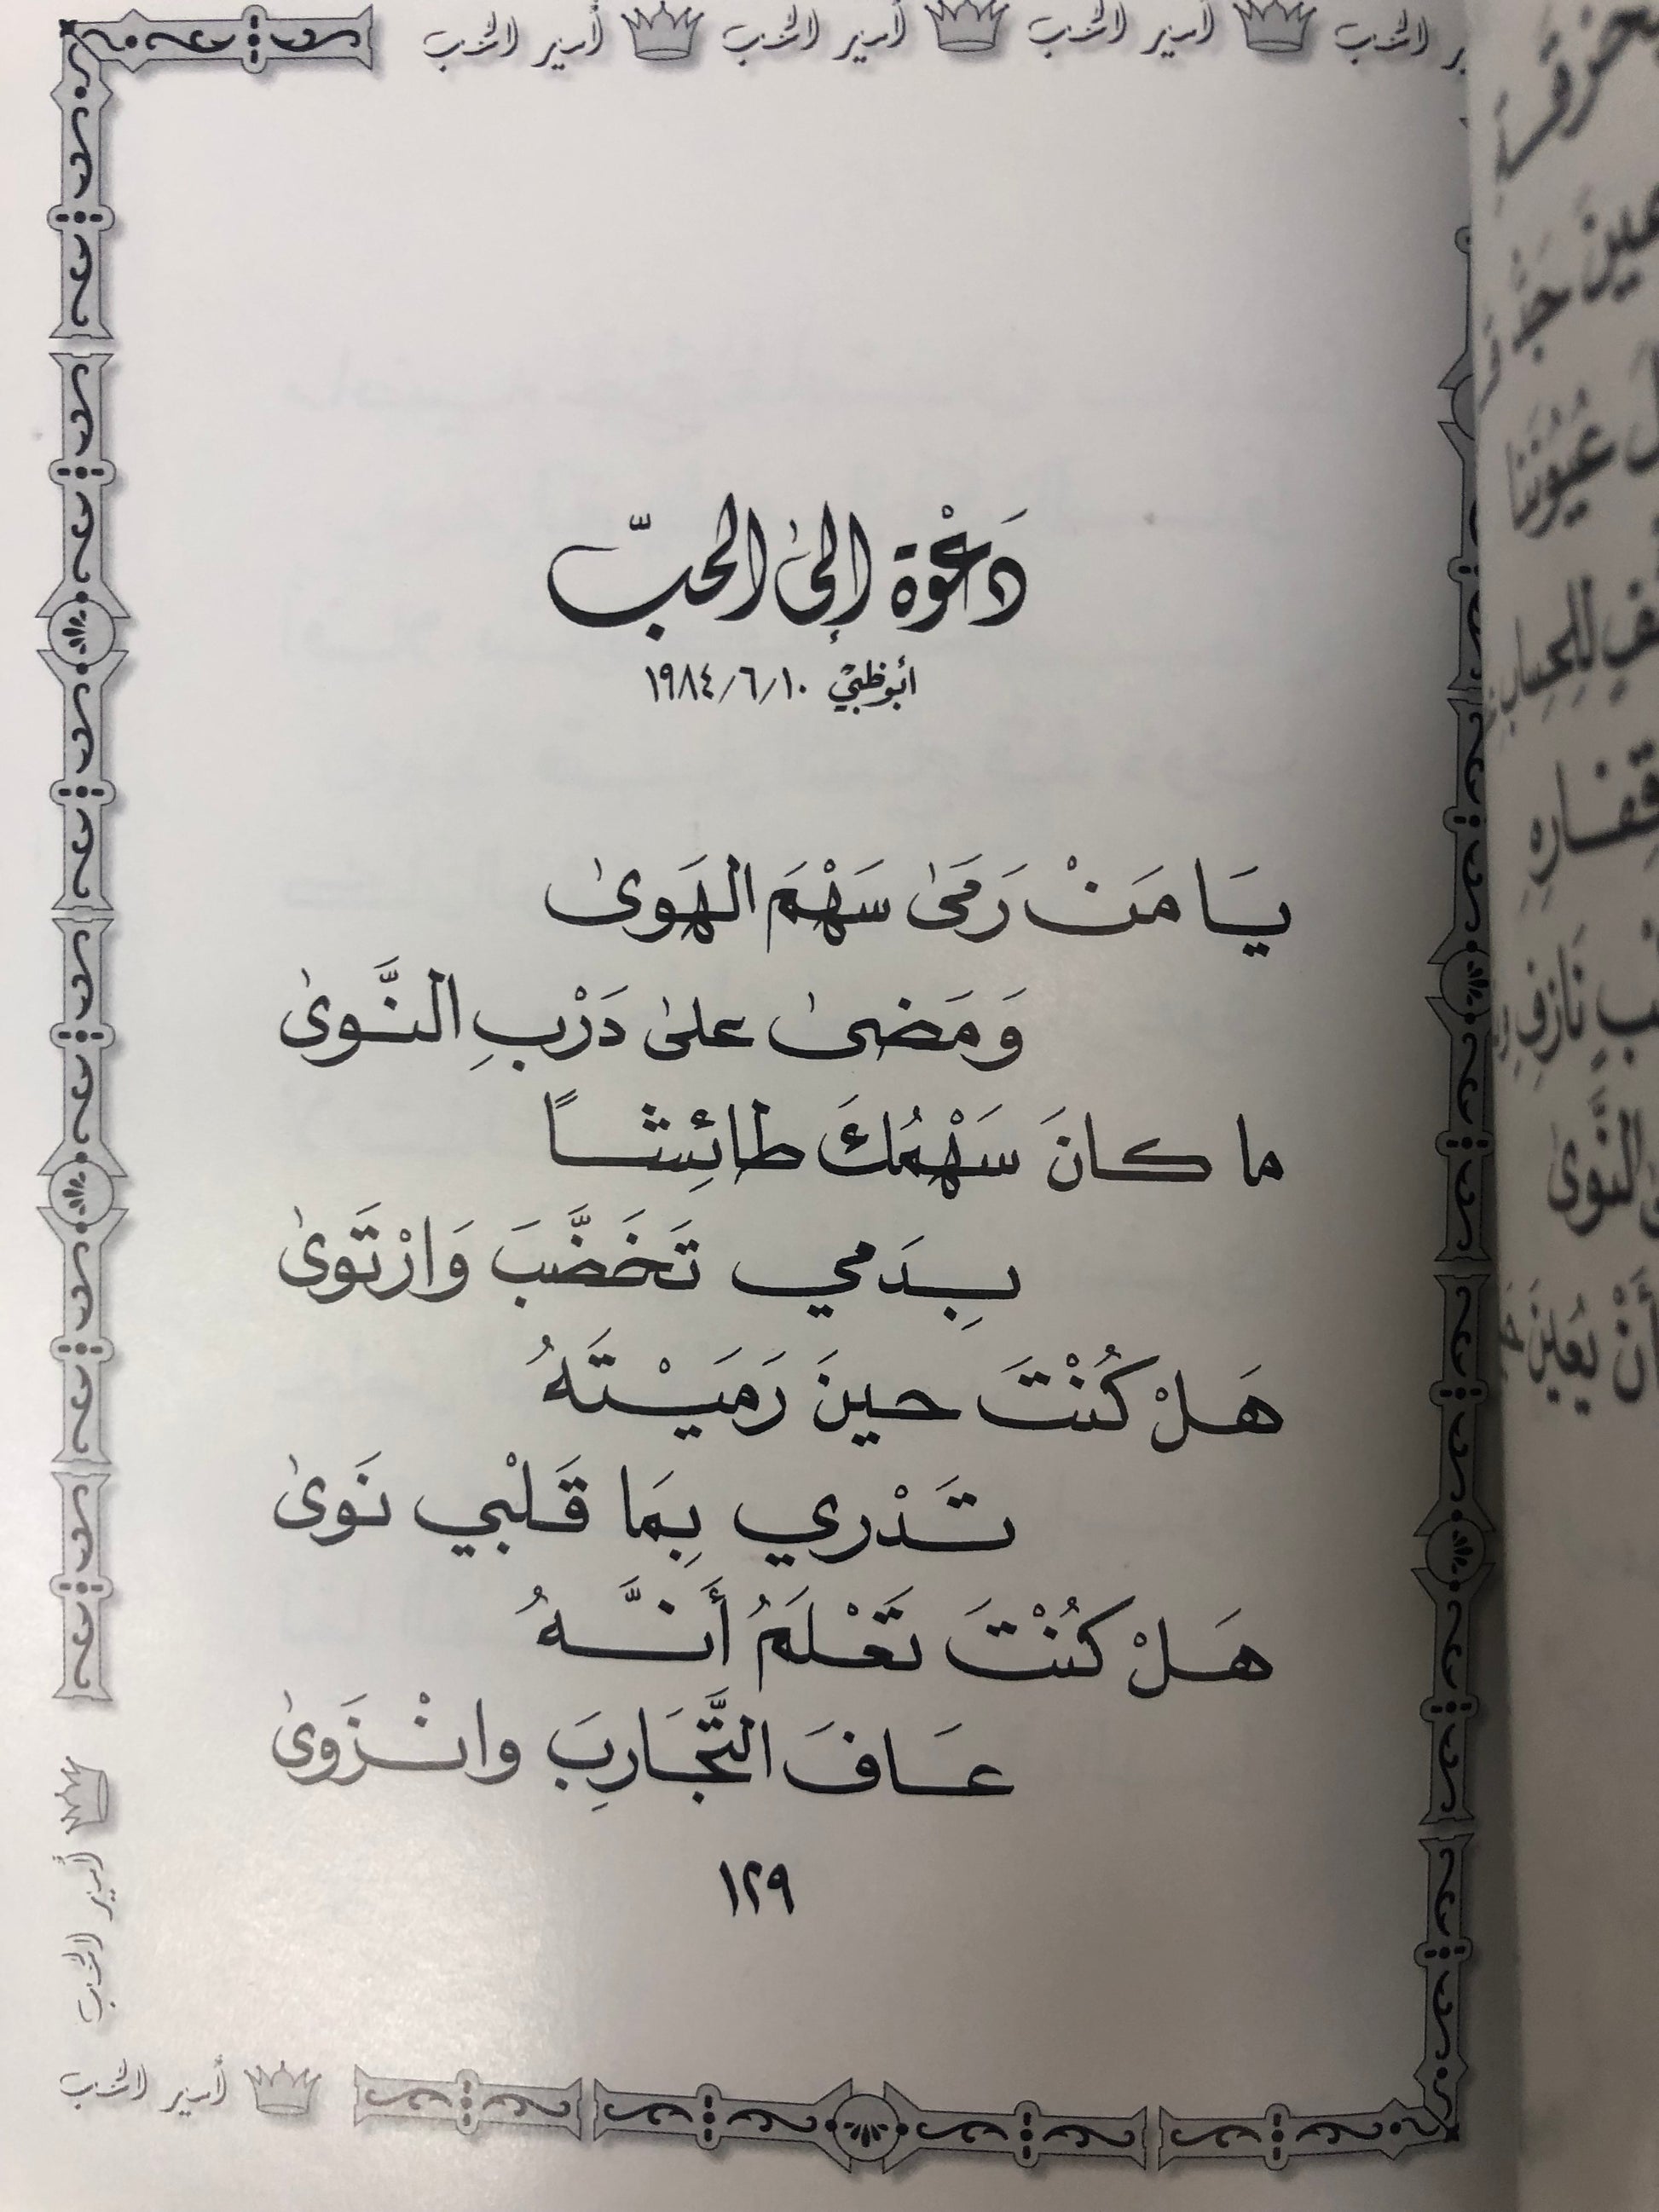 أمير الحب أمير الحب أمير الحب الحب
دَعْوَة إلىٰ الحبّ
أبوظبيْ ١٩٨٤/٦/١٠
يَا مَنْ رَمَىٰ سَهْمَ الهَوىٰ
وَمَضىٰ علىٰ دَرْبِ النَّوىٰ
ما كانَ سَهْمُكَ طائِشاً
بِدَمي تَخَضَّبَ وَارْتَوىٰ
هَلْ كُنْتَ حينَ رَمَيْتَهُ
تَدْري بِمَا قَلْبي نَوىٰ
هَلْ كُنْتَ تَعْلَمُ أَنَّهُ
عَافَ التَّجَارِبَ وانْزَوىٰ
١٢٩
أمير الحب
أمير الحب
عُيُوُنَنَا
قِفارِهِ
النَّوىٰ